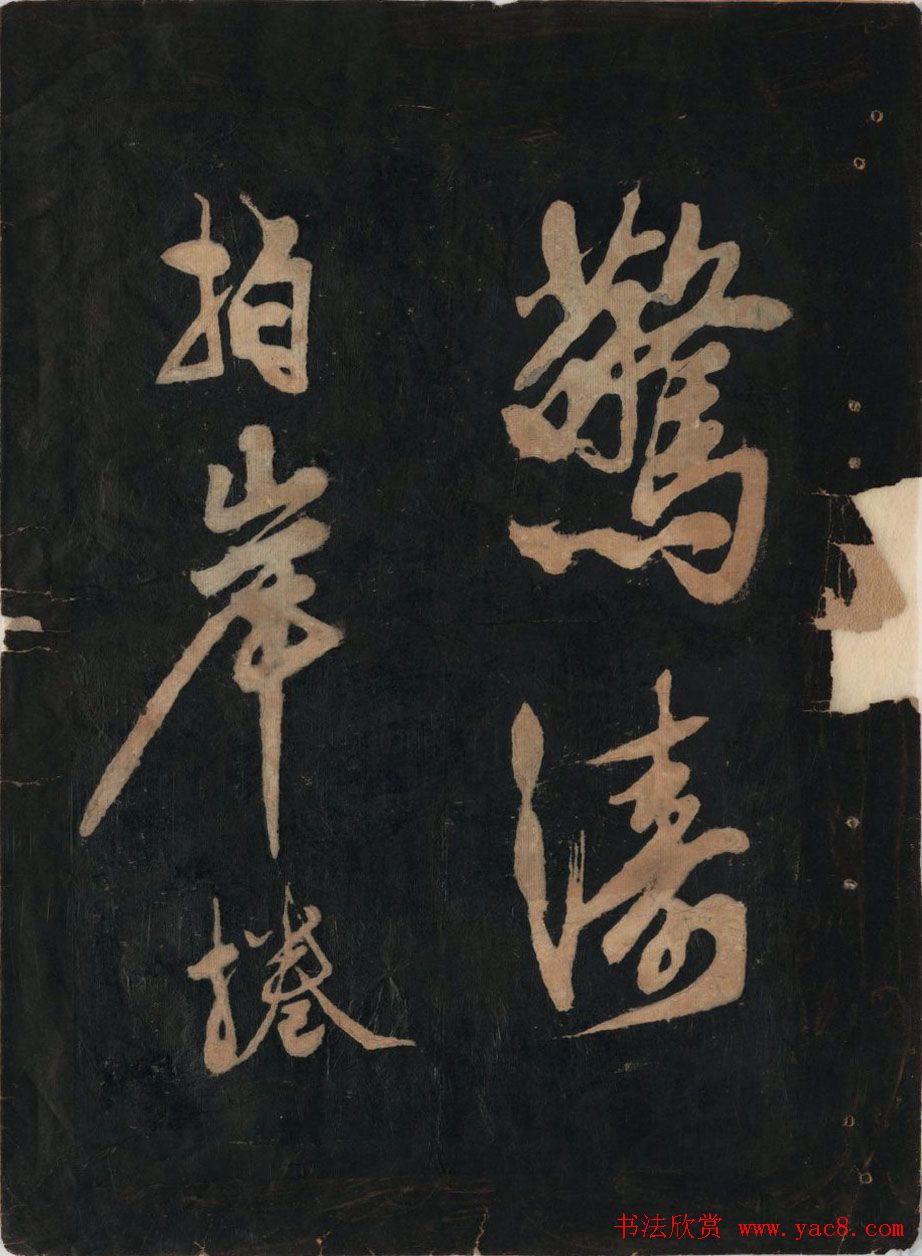 驚濤
拍岸捲
书法欣赏 www.yac8.com